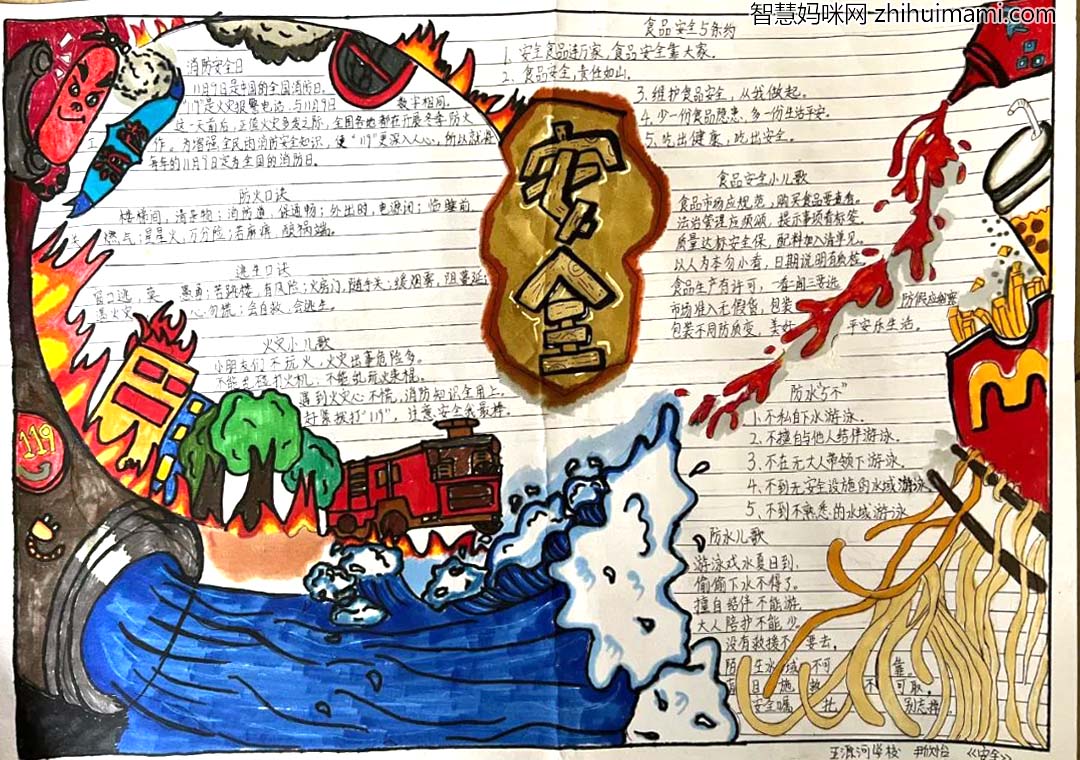 智慧妈咪网-zhihuimami.com
消防安全日
11月9日是中国的全国消防日。
"119"是火灾报警电话，与11月9日 数字相同。
这一天前后，正值火灾多发之际，全国各地都在开展冬季防火
工 作。为增强全民的消防安全知识，使"119"更深入人心，所以就将
每年的11月9日定为全国的消防日。
消防
防火口诀
楼梯间，清杂物；消防道，保通畅；外出时，电源闭；临睡前
关 燃气；星星火，万分险；若麻痹，酿祸端。
逃生口诀
愚勇；若跳楼，有风险；火房门，随手关；缓烟雾，阻蔓延；
遇火灾 心勿慌；会自救，会逃生。
火灾小儿歌
小朋友们不玩火，火灾出事危险多。
不能去碰打火机，不能乱玩火柴棍。
遇到火灾心不慌，消防知识全用上。
赶紧拨打"119"，注意安全我最棒。
119
安全
食品安全与条约
1、安全食品进万家，食品安全靠大家。
2、食品安全，责任如山。
3、维护食品安全，从我做起。
4、少一份食品隐患，多一份生活平安。
5、吃出健康，吃出安全。
食品安全小儿歌
食品市场应规范，购买食品要查看。
质量达标安全保，配料加入清单见。
以人为本勿小看，日期说明有质检。
食品生产有许可，一看二问三要选
市场准入无假货，包装
包装不同防质变，美好 平安乐生活。
防水"5不"
1、不私自下水游泳。
2、不擅自与他人结伴游泳。
3、不在无大人带领下游泳。
4、不到无安全设施的水域游泳
5、不到不熟悉的水域游泳
防水儿歌
游泳戏水夏日到，
偷偷下水不得了。
擅自结伴不能游，
大人陪护不能少。
没有救援不 要去，
不 可取。
安全嘱
王源河学校 尹欣怡 《安全》